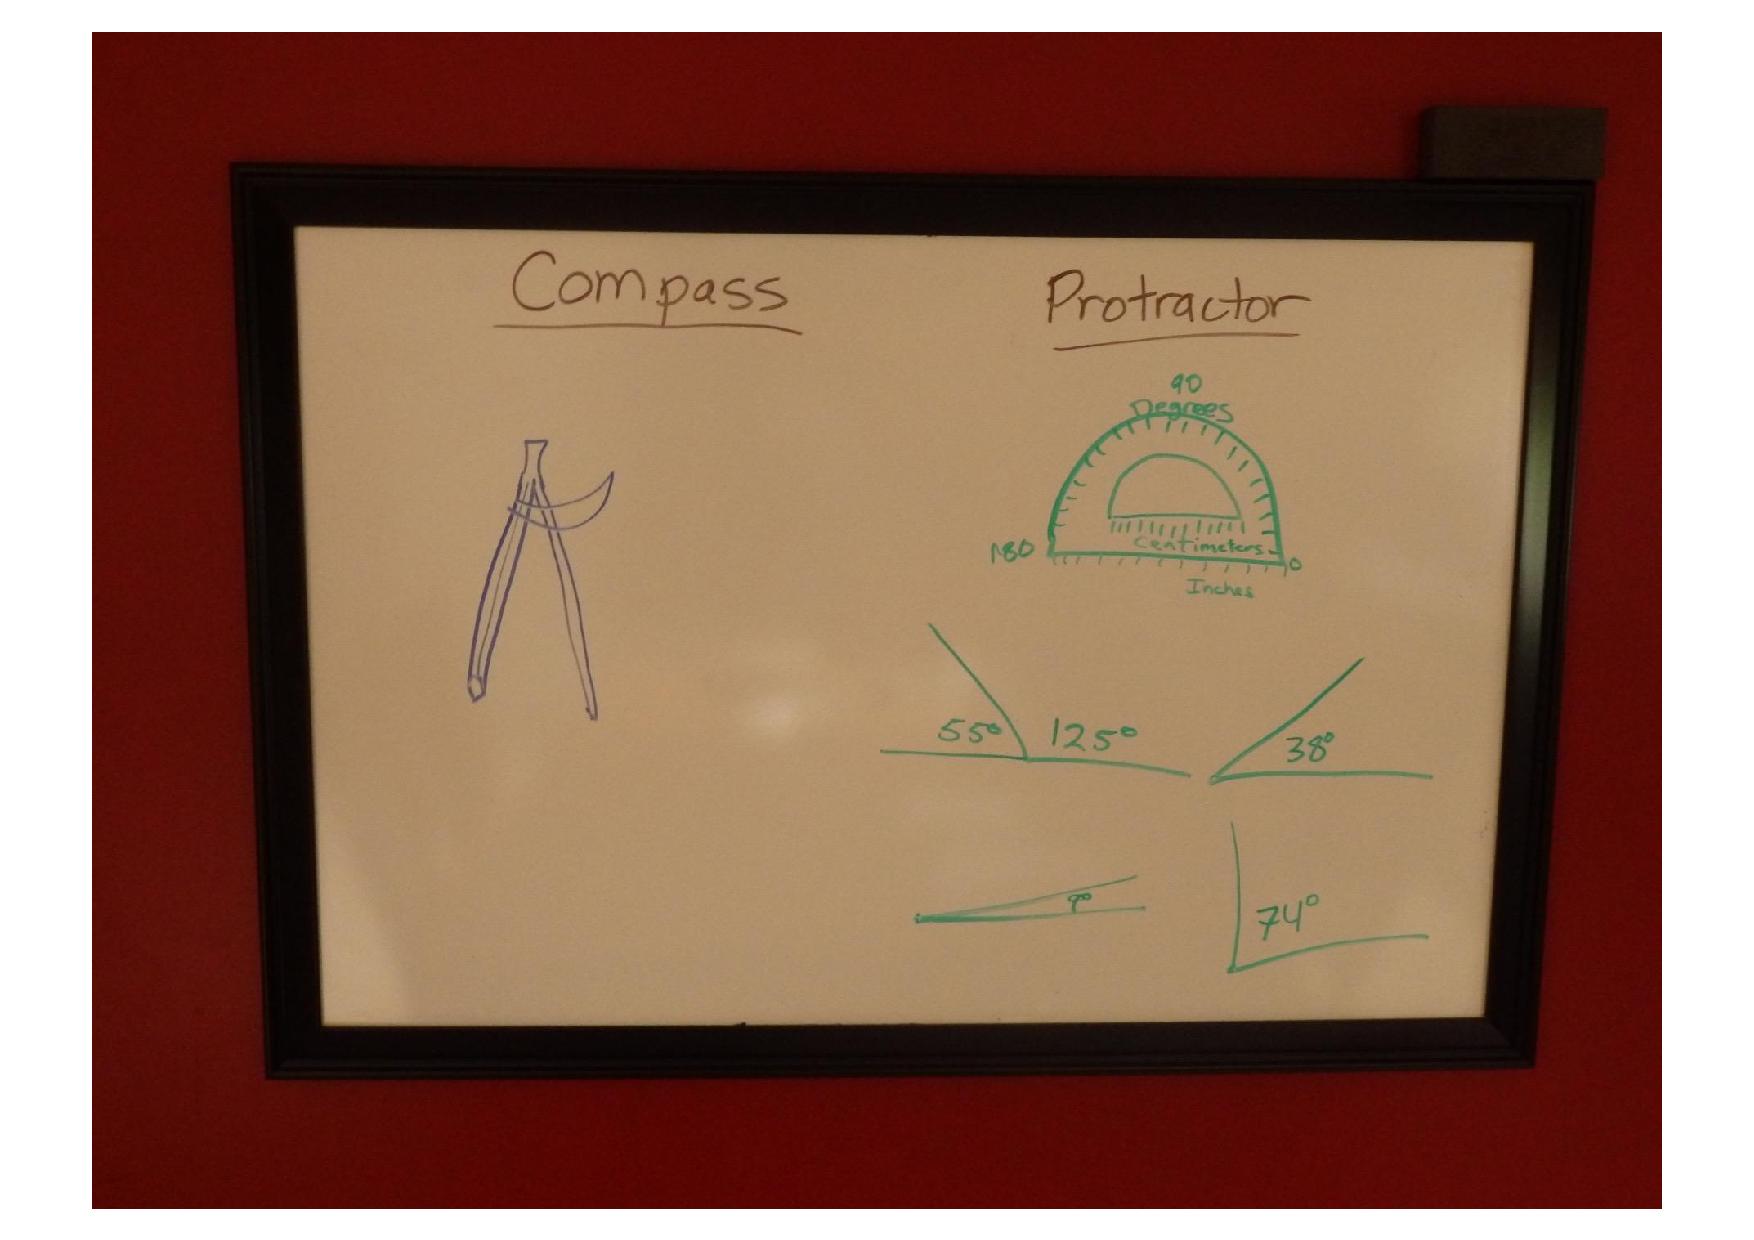 Compass
Protractor
90
Degrees
180
Centimeters
0
Inches
55° 125°
38°
9°
74°